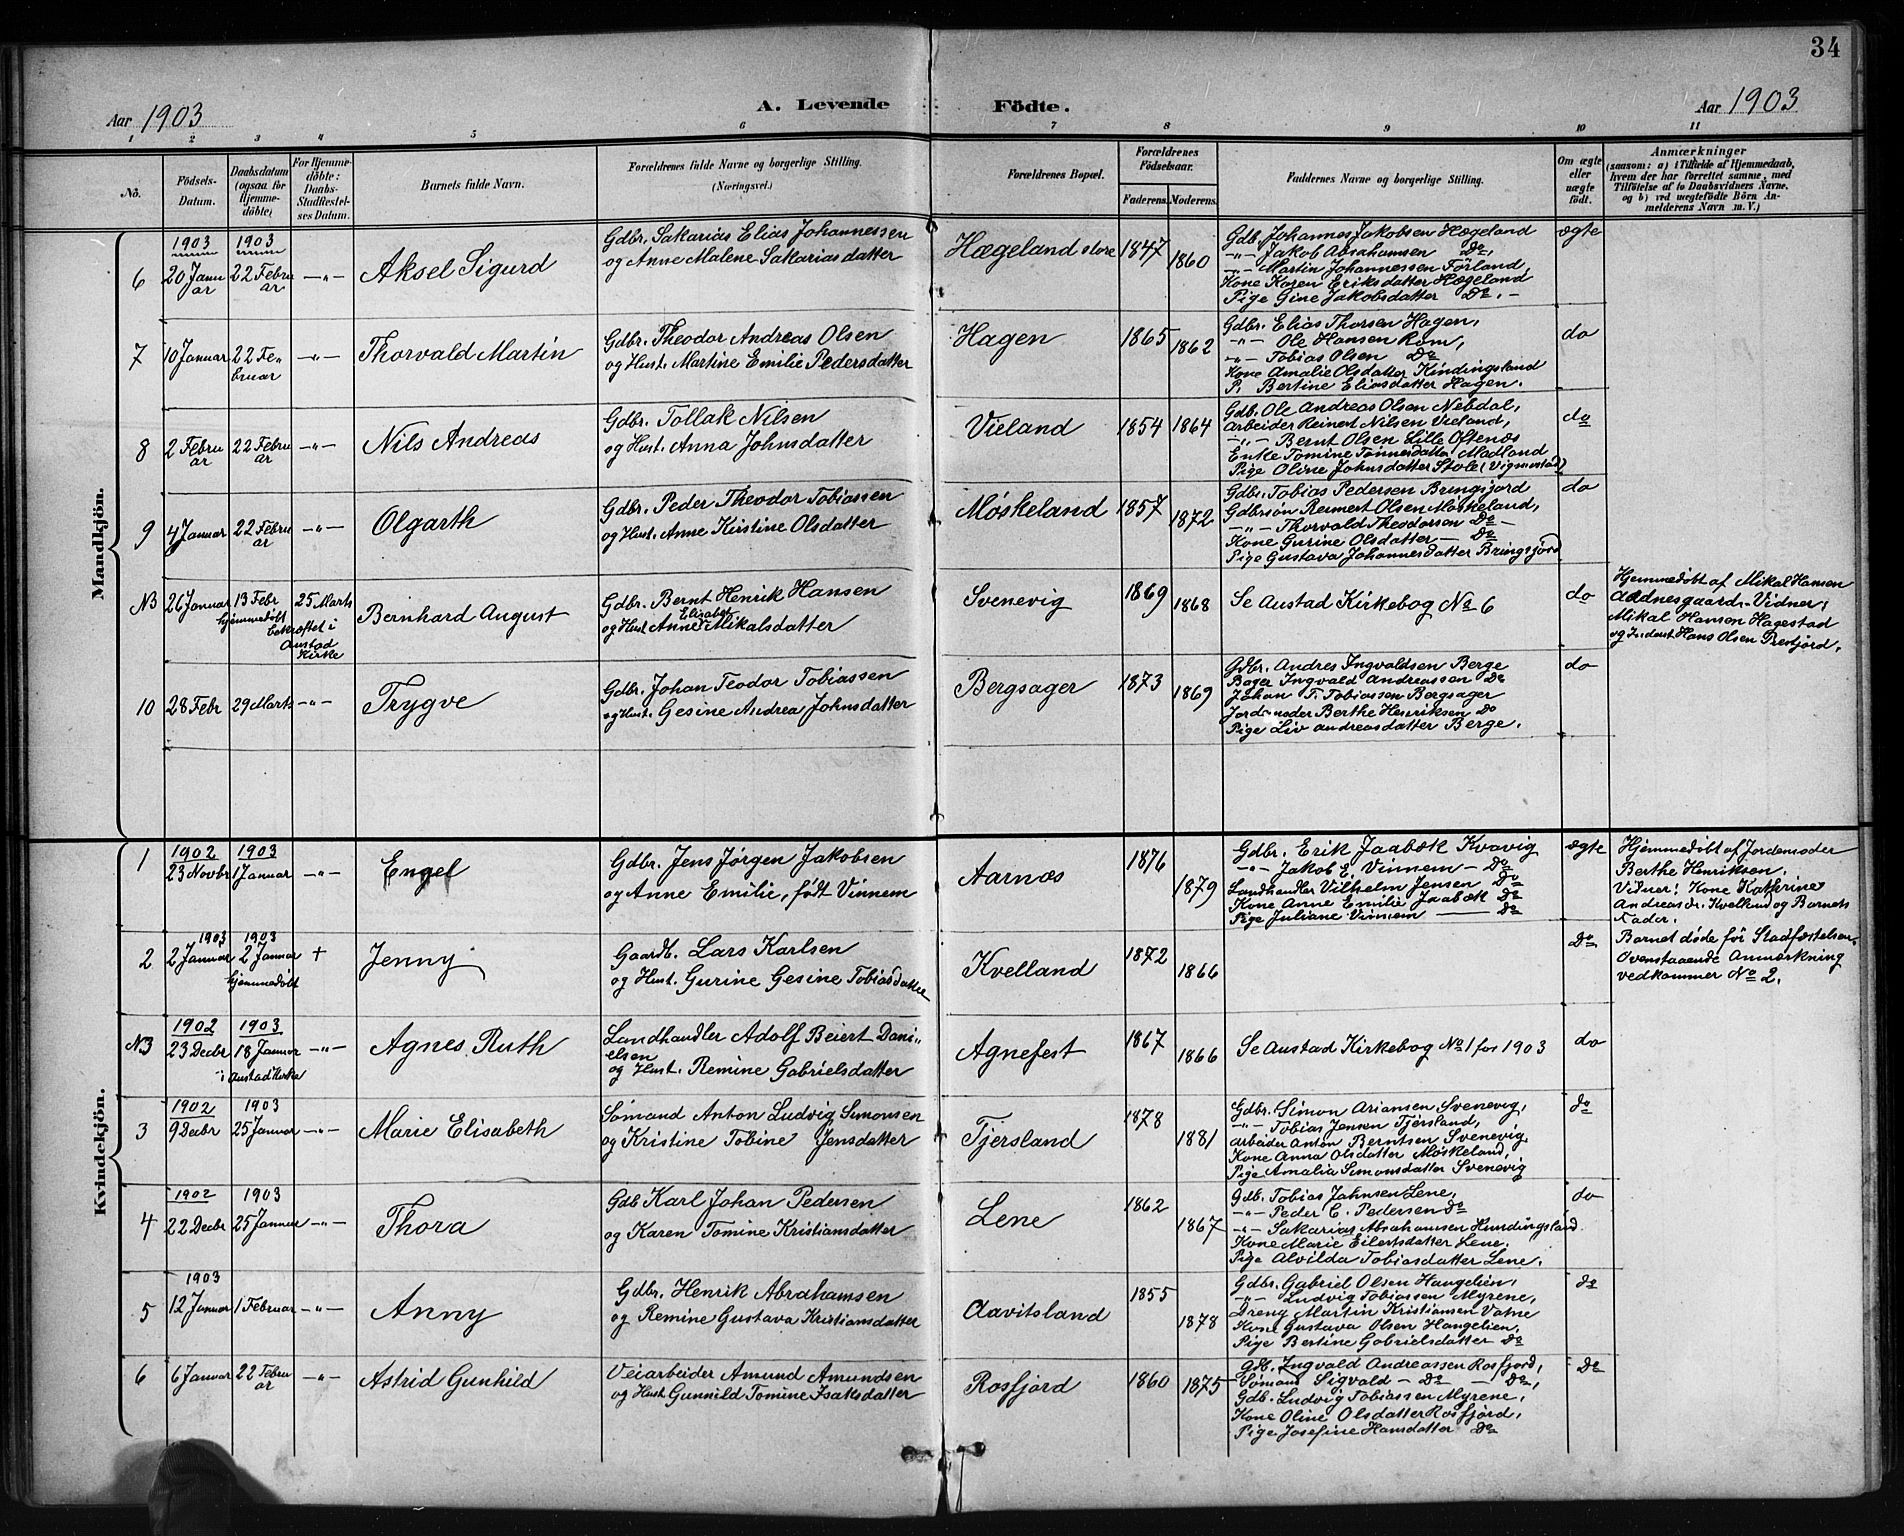 34
Aar 1903
A. Levende Födte.
Aar 1903
1 2 3 4 5 6 7 8 9 10 11
No.
Födsels-Datum.
Daabsdatum (ogsaa for Hjemme-döbte)
For Hjemme-döbte: Daabs-Stadfæstel-ses Datum.
Barnets fulde Navn.
Forældrenes fulde Navne og borgerlige Stilling. (Næringsvei.)
Forældrenes Bopæl.
Forældrenes Födselsaar.
Faderens. Moderens.
Faddernes Navne og borgerlige Stilling.
Om ægte eller uægte födt.
Anmærkninger
(saasom: a) i Tilfælde af Hjemmedaab, hvem der har forrettet samme, med Tilföielse af to Daabsvidners Navne, og b) ved uægtefödte Börn An-melderens Navn m. V.)
Mandkjön.
6
1903
20 Janu
ar
1903
22 Febru
ar
-"-
Aksel Sigurd
Gdbr. Sakarias Elias Johannessen
og Anne Malene Sakariasdatter
Hægeland store
1847
1860
Gdb. Johannes Jakobsen Hægeland
-"- Jakob Abrahamsen Do,
-"- Martin Johannessen Förland,
Kone Karen Eriksdatter Hægeland
Pige Gine Jakobsdatter Do. -
ægte
7
10 Januar
22 Fe-
bruar
-"-
Thorvald Martin
Gdbr. Theodor Andreas Olsen
og Hust. Martine Emilie Pedersdatter
Hagen
1865
1862
Gdbr. Elias Thorsen Hagen,
-"- Ole Hansen Rom,
-"- Tobias Olsen Do
Kone Amalie Olsdatter Kindingsland
P. Bertine Eliasdatter Hagen.
do
8
2 Febru
ar
22 Febru
ar
-"-
Nils Andreas
Gdbr. Tollak Nilsen
og Hust. Anna Johnsdatter
Vieland
1854
1864
Gdb. Ole Andreas Olsen Nebdal,
arbeider Reinert Nilsen Vieland,
-"- Bernt Olsen Lille Oftenæs
Enke Tomine Tönnesdatter Madland
Pige Oline Johnsdatter Stole (Vigmostad)
do
9
4 Januar
22 Febru
ar
-"-
Olgarth
Gdbr. Peder Theodor Tobiassen
og Hust. Anne Kirstine Olsdatter
Møskeland
1857
1872
Gdbr. Tobias Pedersen Bringsjord
Gdbrsön Reinert Olsen Møskeland,
-"- Thorvald Theodorsen Do -
Kone Gurine Olsdatter - Do
Pige Gustava Johannesdatter Bringsjord
do
NB
26 Januar
13 Febr
hjemmedöbt
25 Marts
bekræftet i
Austad
Kirke
Bernhard August
Gdbr. Bernt Henrik Hansen
og Hust Anne Elisabet Mikalsdatter
Svenevig
1869
1868
Se Austad Kirkebog No 6
do
Hjemmedöbt af Mikal Hansen
Aadnesgaard, Vidner;
Mikal Hansen Hagestad
og Hans Olsen Prestjord.
10
28 Febr
29 Marts
-"-
Trygve
Gdbr. Johan Teodor Tobiassen
og Hust. Gesine Andrea Johnsdatter
Bergsager
1873
1869
Gdbr. Andres Ingvaldsen Berge
Bager Ingvald Andreassen Do
Johan T. Tobiassen Bergsager
Jordemoder Berthe Henriksen Do
Pige Liv Andreasdatter Berge.
do
Kvindekjön.
1
1902
23 Novbr
1903
1 Januar
-"-
Engel
Gdbr. Jens Jörgen Jakobsen
og Anne Emilie, født Vinnem
Aarnæs
1876
1879
Gdbr. Erik Jaabæk Kvavig
-"- Jakob E. Vinnem - Do
Landhandler Vilhelm Jensen Do
Kone Anne Emilie Jaabæk Do
Pige Juliane Vinnem - Do
ægte
Hjemmedöbt af Jordemoder
Berthe Henriksen.
Vidner: Kone Kathrine
Andreasdr. Kvelland og Barnets
Fader.
2
1903
2 Januar
1903
2 Januar
hjemmedöbt
+
Jenny
Gaardb. Lars Karlsen
og Hust. Gurine Gesine Tobiasdatter
Kvelland
1872
1866
Do
Barnet døde før Stadfæstelsen.
Ovenstaaende Anmærkning
vedkommer No 2.
NB
1902
23 Decbr
1903
18 Januar
i Austad Kirke
-"-
Agnes Ruth
Landhandler Adolf Beiert Dani-
elsen
og Hust. Remine Gabrielsdatter
Agnefest
1867
1866
Se Austad Kirkebog No 1 for 1903
do
3
1902
9 Decbr
1903
25 Januar
-"-
Marie Elisabeth
Sömand Anton Ludvig Simonsen
og Kristine Tobine Jensdatter
Tjersland
1878
1881
Gdbr. Simon Ariansen Svenevig,
-"- Tobias Jensen Tjersland,
arbeider Anton Berntsen Svenevig
Kone Anna Olsdatter Møskeland,
Pige Amalia Simonsdatter Svenevig
do
4
1902
22 Decbr
1903
25 Januar
-"-
Thora
Gdb Karl Johan Pedersen
og Karen Tomine Kristiansdatter
Lene
1862
1867
Gdb. Tobias Jahnsen Lene,
-"- Peder C. Pedersen Do
-"- Sakarias Abrahamsen Hundingsland
Kone Marie Eilertsdatter Lene.
Pige Alvilda Tobiasdatter Lene.
do
5
1903
12 Januar
1 Februar
-"-
Anny
Gdbr. Henrik Abrahamsen
og Remine Gustava Kristiansdatter
Aavitsland
1855
1878
Gdbr. Gabriel Olsen Haugelien,
-"- Ludvig Tobiassen Myrene,
Dreng Martin Kristiansen Vatne
Kone Gustava Olsen Haugelien,
Pige Bertine Gabrielsdatter Do
do
6
6 Januar
22 Febru
ar
-"-
Astrid Gunhild
Veiarbeider Amund Amundsen
og Hust Gunnild Tomine Isaksdatter
Rosfjord
1860
1875
Gdb. Ingvald Andreassen Rosfjord,
Sömand Sigvald - Do - Do,
Gdb. Ludvig Tobiassen Myrene,
Kone Oline Olsdatter Rosfjord,
Pige Josefine Hansdatter Do
Do